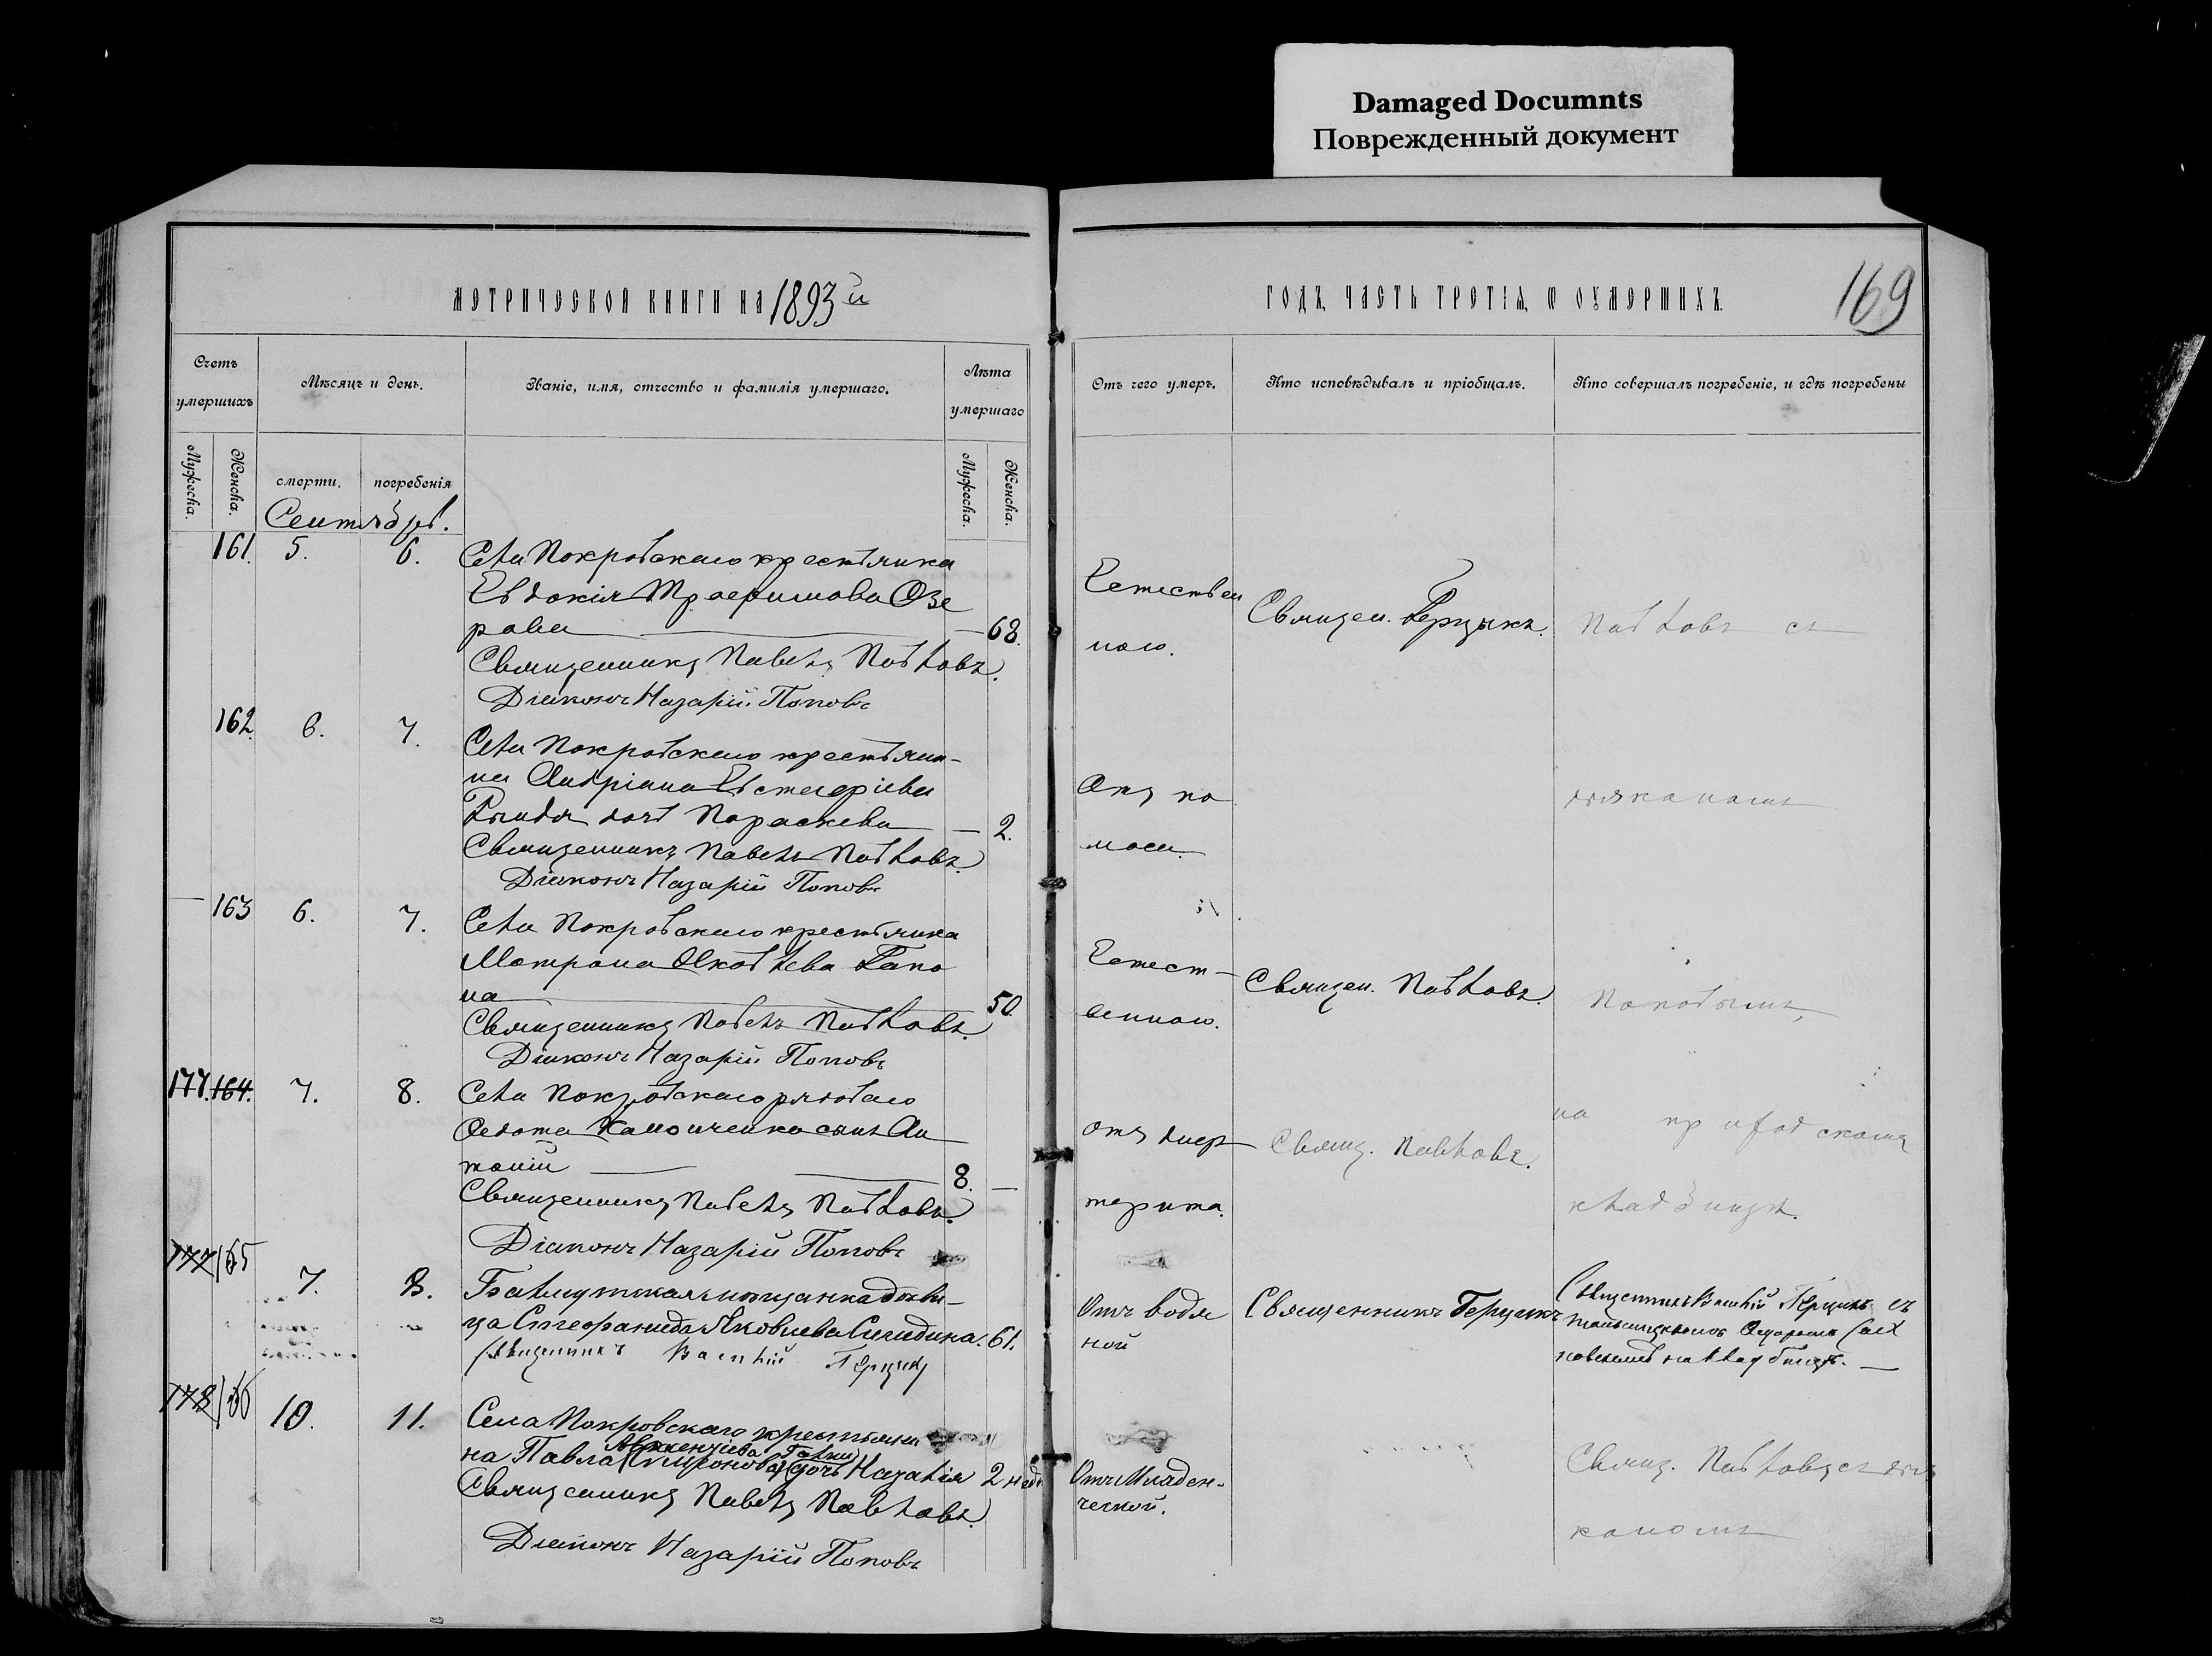 Damaged Documnts
Поврежденный документ
МЕТРИЧЕСКОЙ КНИГИ НА 1893 й
ГОДЪ, ЧАСТЬ ТРЕТІЯ, Ѡ ОУМЕРШИХЪ.
169
Счетъ умершихъ
Мѣсяцъ и день.
Званіе, имя, отчество и фамилія умершаго.
Лѣта умершаго
Отъ чего умеръ.
Кто исповѣдывалъ и пріобщалъ.
Кто совершалъ погребеніе, и гдѣ погребены
Мужеска.
Женска.
смерти.
погребенія
Мужеска.
Женска.
Сентябрь.
161. 5. 6. Села Покровскаго крестьянка
Евдокія Трофимова Озе
рова — 68.
Естествен
наго.
Священ. Герцыкъ.
Павловъ съ
Священникъ Павелъ Павловъ.
Діаконъ Назарій Поповъ
162. 6. 7. Села Покровскаго крестьяни-
на Андріана Евстафіева
дочь Параскева — 2.
Отъ по
носа.
дьякономъ
Священникъ Павелъ Павловъ.
Діаконъ Назарій Поповъ
— 163 6. 7. Села Покровскаго крестьянка
Матрона Яковлева Гапо
на 50.
Естест-
веннаго.
Священ. Павловъ.
Поповымъ,
Священникъ Павелъ Павловъ.
Діаконъ Назарій Поповъ
177. 164. 7. 8. Села Покровскаго рядоваго
Федота сынъ Ан
тоній — 8. —
отъ дифтерита.
Свящ. Павловъ.
на приходскомъ
кладбищѣ.
Священникъ Павелъ Павловъ.
Діаконъ Назарій Поповъ
177 165 7. 8. Бахмутская мѣщанка дѣви-
ца Стефанида Яковлева 61.
Отъ водя
ной
Священникъ Герцыкъ
Священникъ Василій Герцыкъ съ
на кладбищѣ. —
Священникъ Василій Герцыкъ
178 166 10. 11. Села Покровскаго крестьяни
на Павла дочь Наталія 2 нед.
Отъ Младен-
ческой.
Свящ. Павловъ съ дья
кономъ
Священникъ Павелъ Павловъ.
Діаконъ Назарій Поповъ